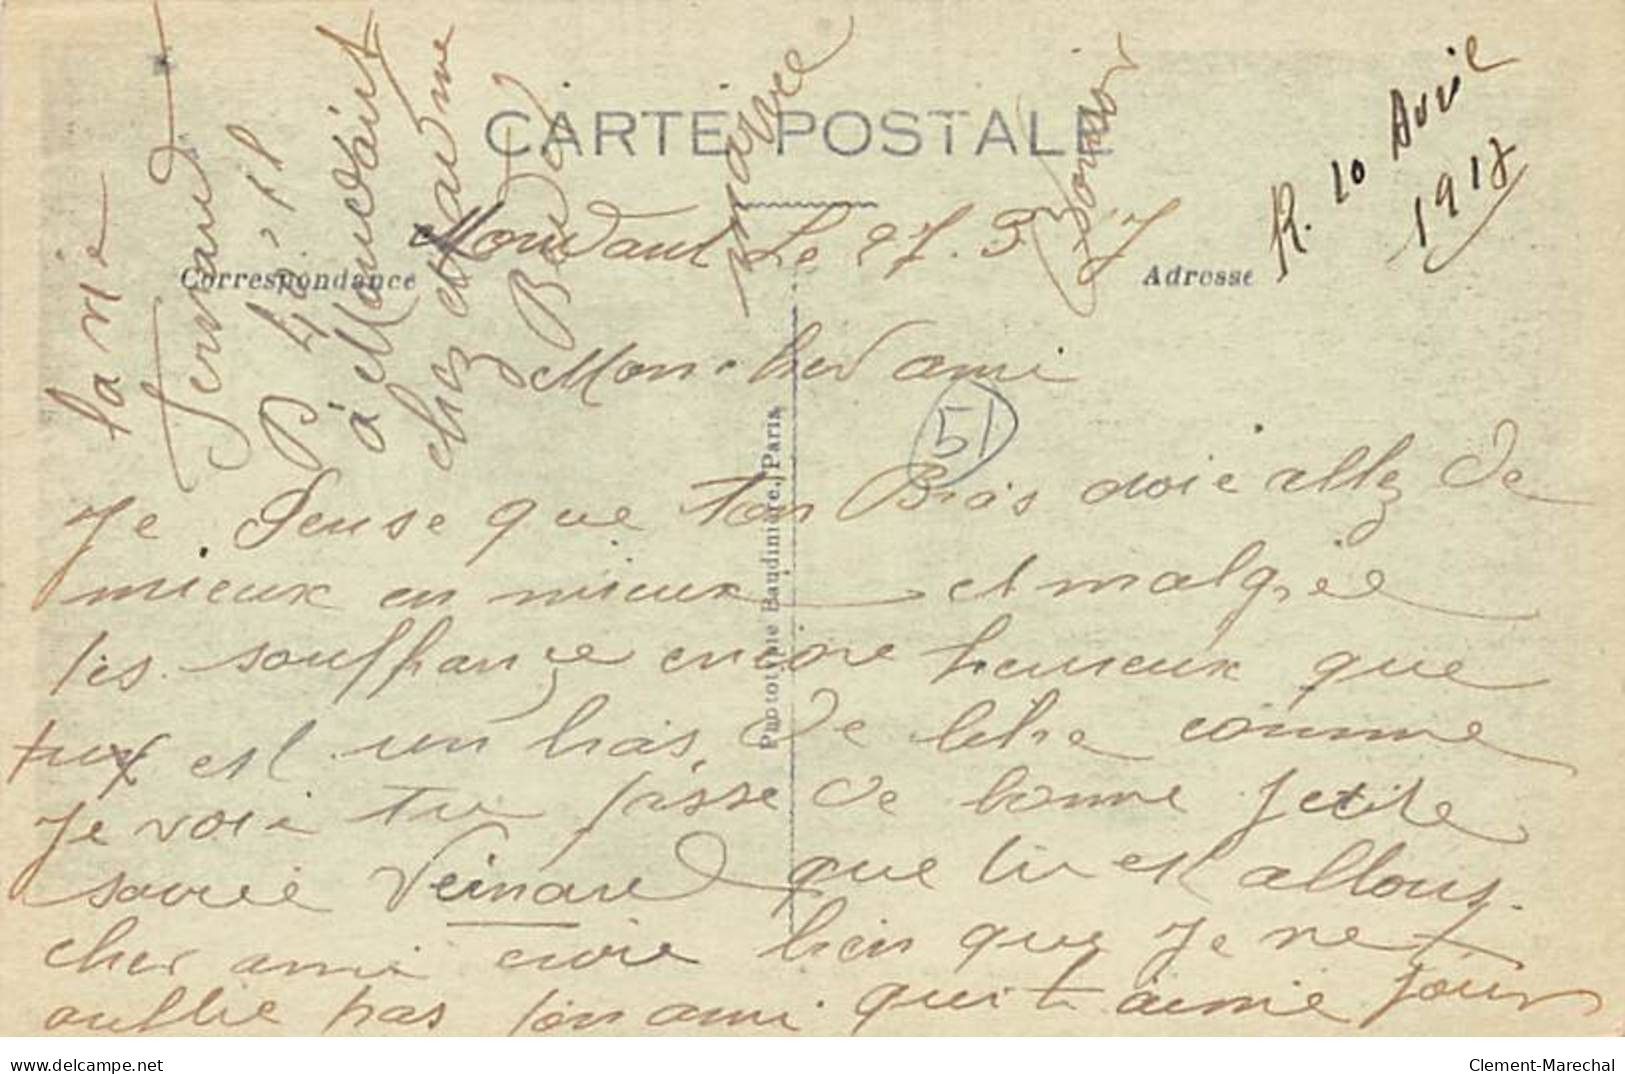 CARTE POSTALE
Correspondance
Adresse
R. 10 Avril
1917
Mondant Le 27. 3
Mon cher ami
51
Je Pense que ton Bras doie allez de
mieux en mieux et malgrée
tes souffrance encore heureux que
tu est un bras de libre comme
je voie tu passe de bonne petite
soirée Veinard que tu est allons
cher ami crois bien que je ne t
oublie pas ton ami qui t aime pour
la vie
Fernand
P 4
à Moncdaint
chez
Phototypie Baudinière, Paris
Clement-Marechal
delcampe.net